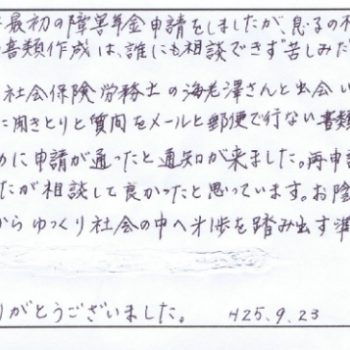 最初の障害年金申請をしましたが、息子の
書類作成は、誰にも相談できず"苦しみだ
社会保険労務士の海老澤さんと出会い
に聞きとりと質問をメールと郵便で行ない書類
めに申請が通ったと通知が来ました。再申
たが相談して良かったと思っています。お陰
からゆっくり社会の中へ半歩を踏み出す準
りがとうございました。 H25.9.23